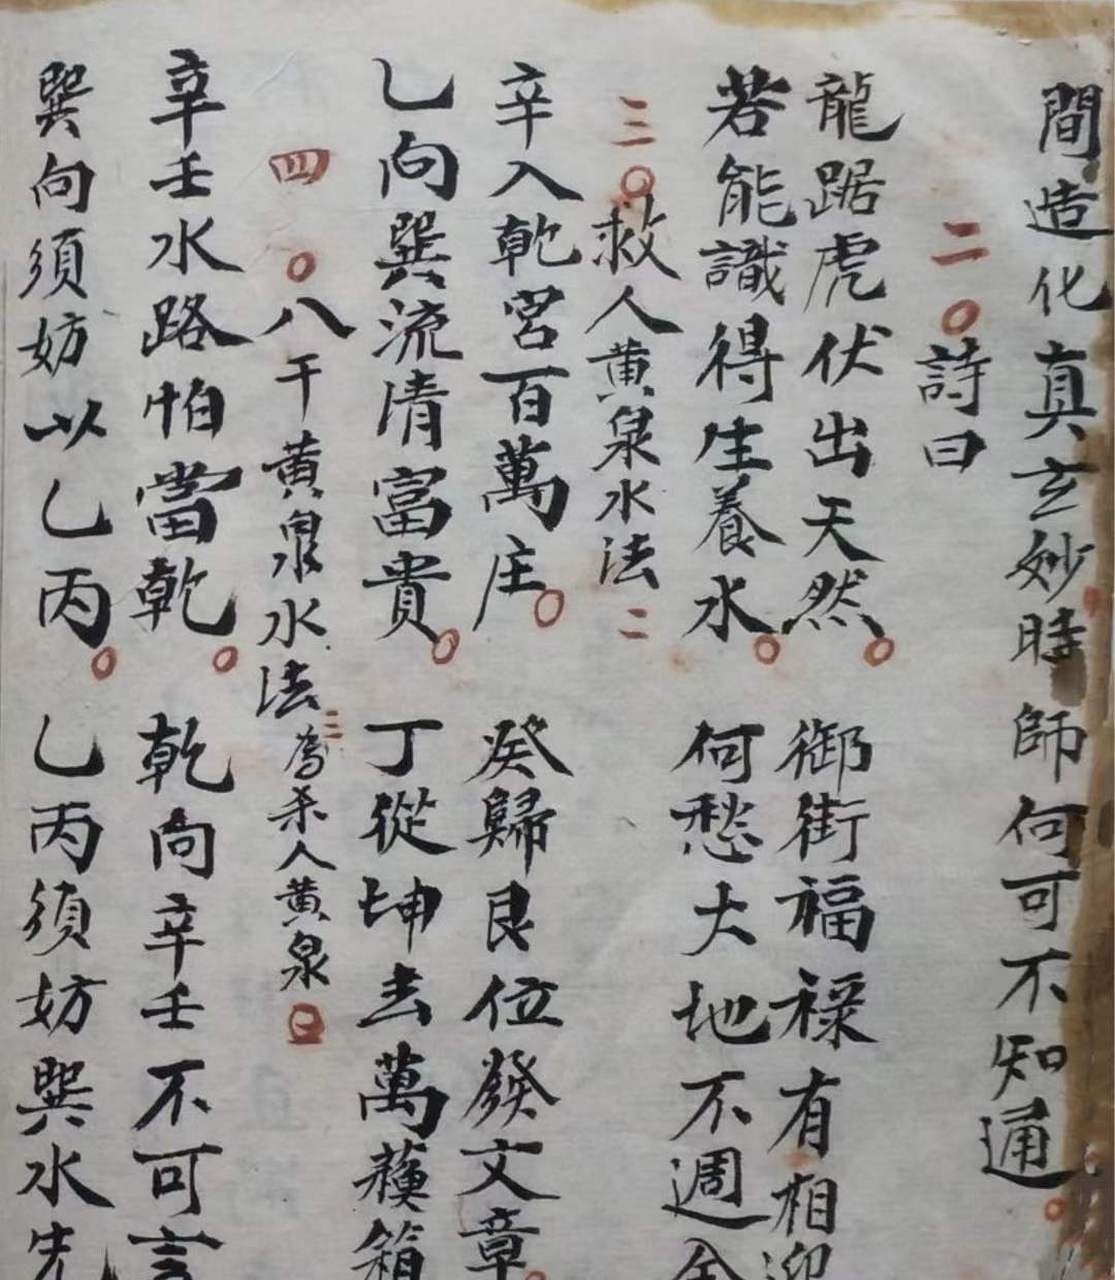 間造化真玄妙時師何可不知通
二〇詩曰
龍踞虎伏出天然 御街福祿有相迎
若能識得生養水 何愁大地不週全
三〇救人黄泉水法二
辛入乾宮百萬庄 癸歸艮位發文章
乙向巽流清富貴 丁從坤去萬蔴箱
四〇八干黄泉水法三為杀人黄泉
辛壬水路怕當乾 乾向辛壬不可言
巽向須妨以乙丙 乙丙須妨巽水先